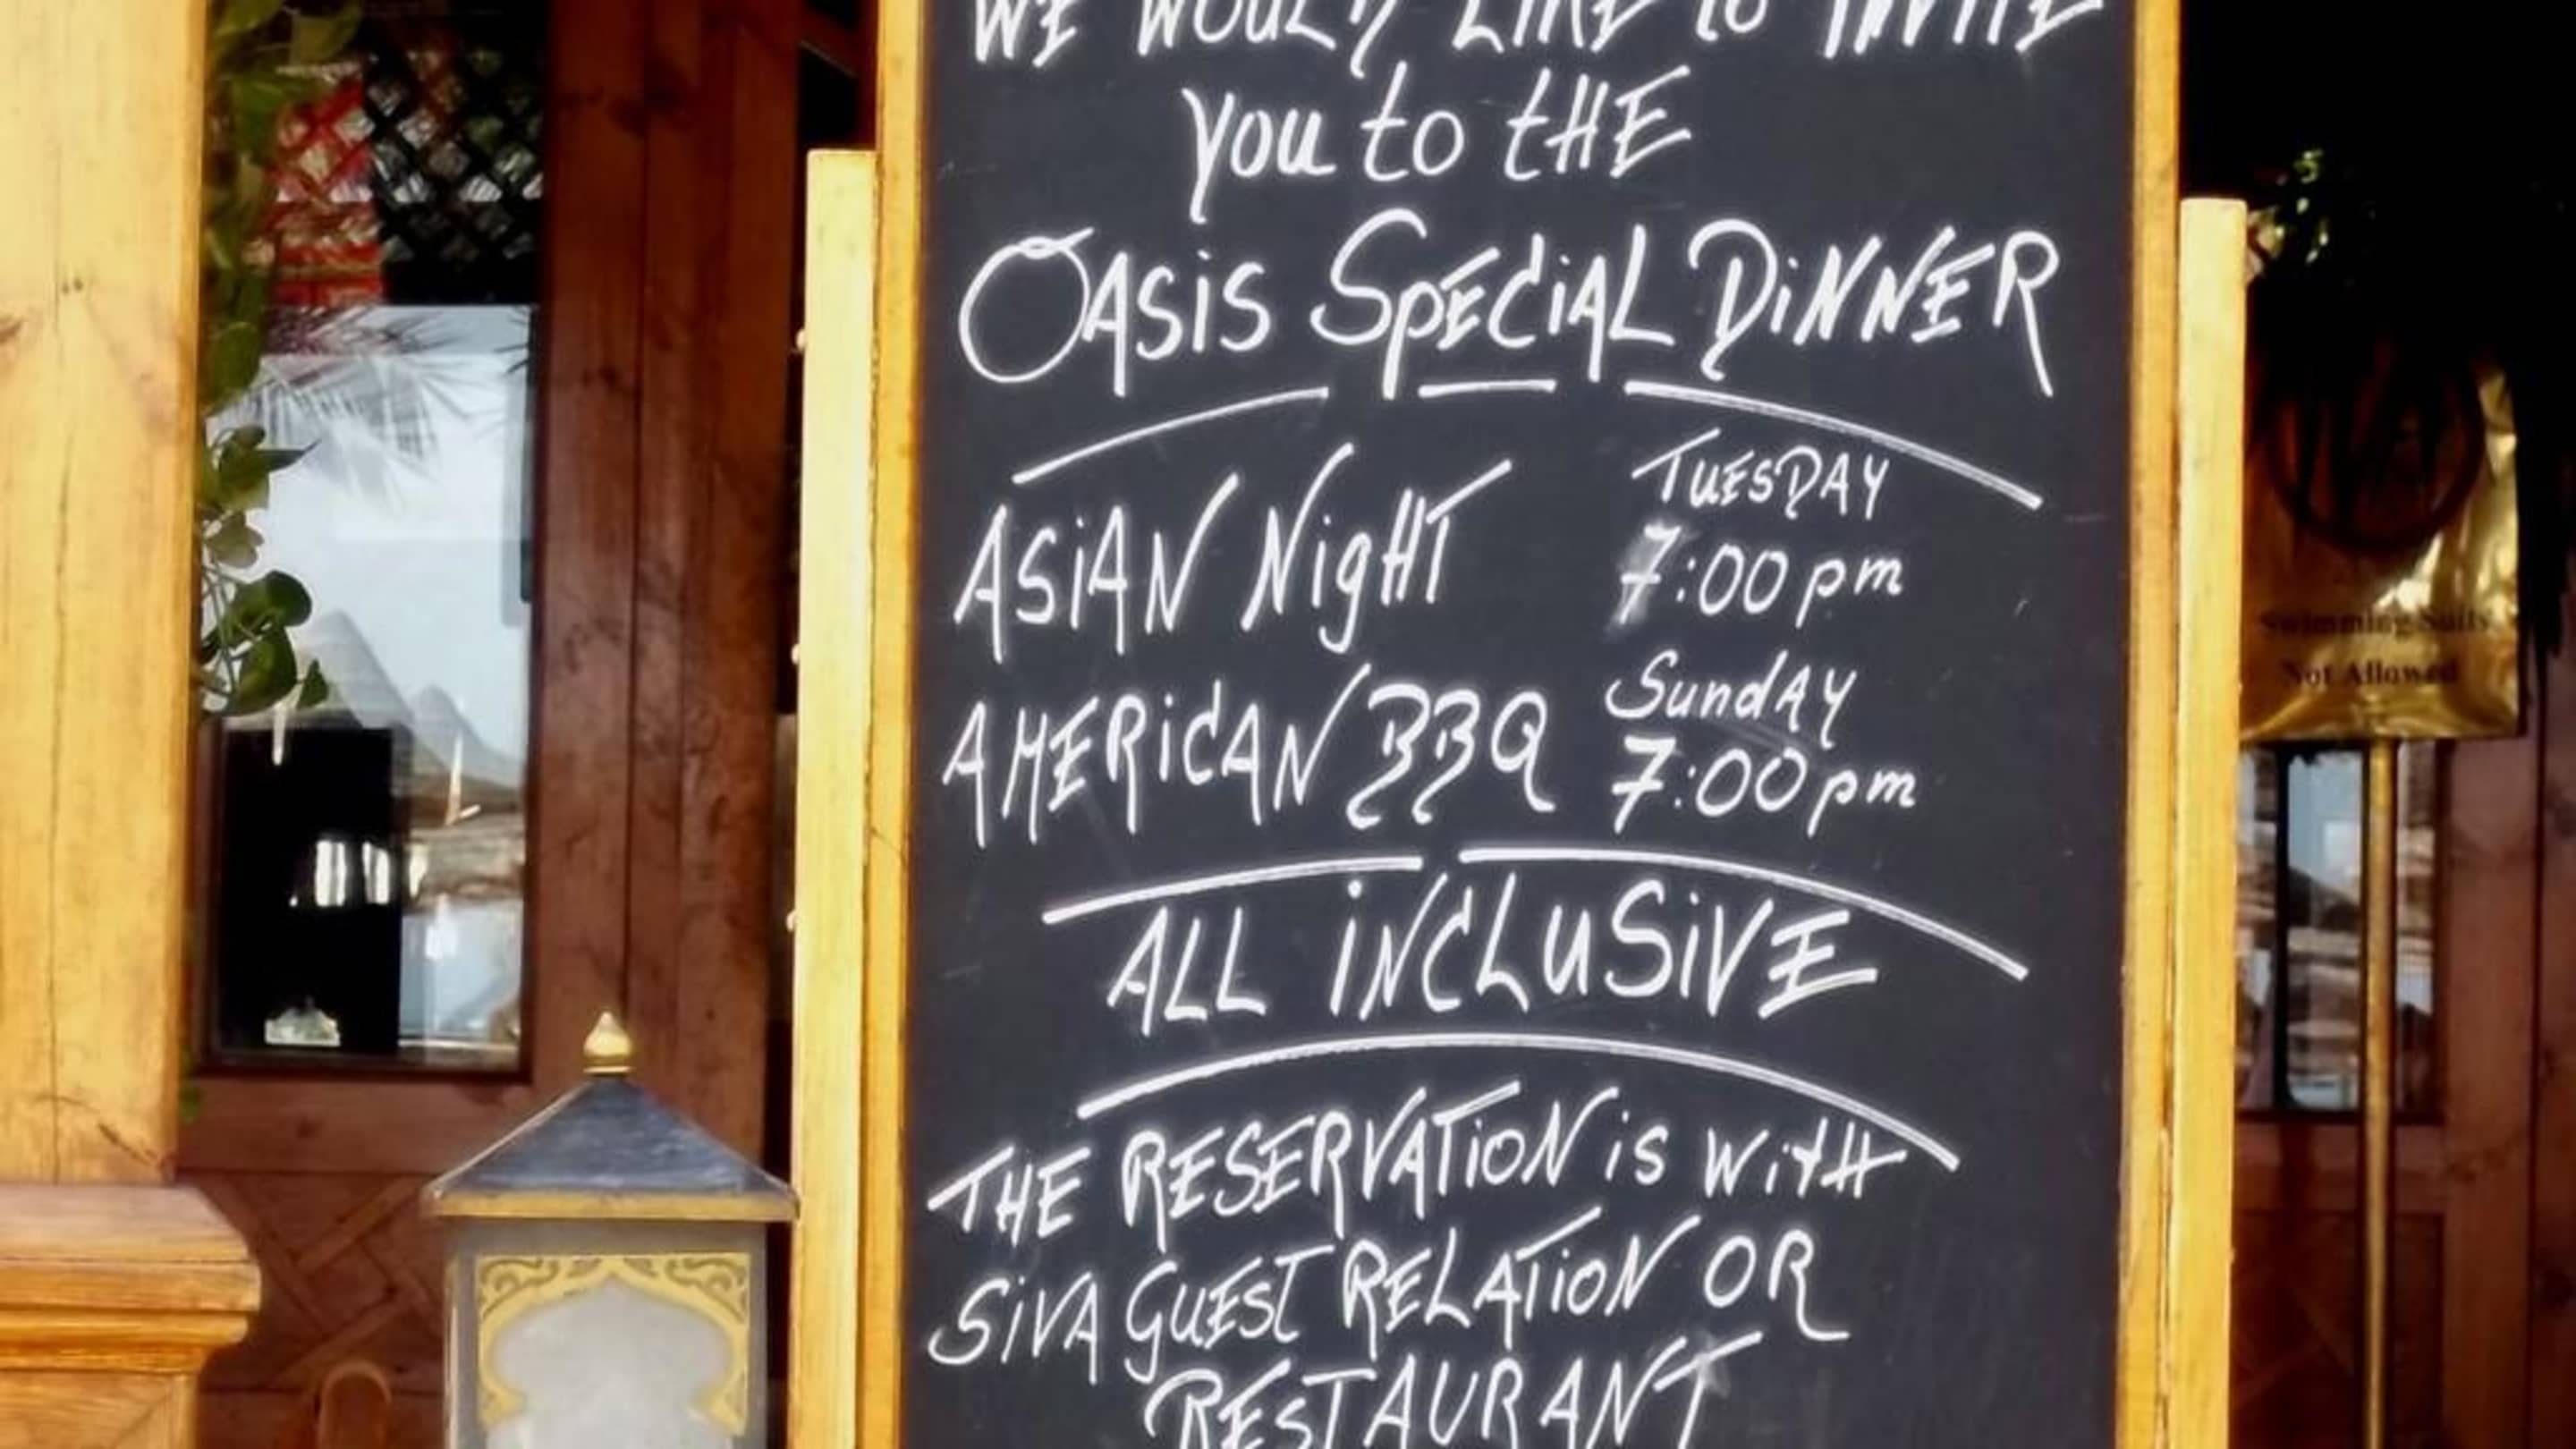 WE WOULD LIKE to INVITE
you to tHE
OASiS SPECiAL DiNNER
ASiAN NigHT TUESDAY
7:00 pm
AMERiCAN BBQ SundAY
7:00 pm
ALL iNCLuSiVE
THE RESERVATioN is WitH
SiVA GUEST RELATioN OR
RESTAURANT
Swimming Suits
Not Allowed